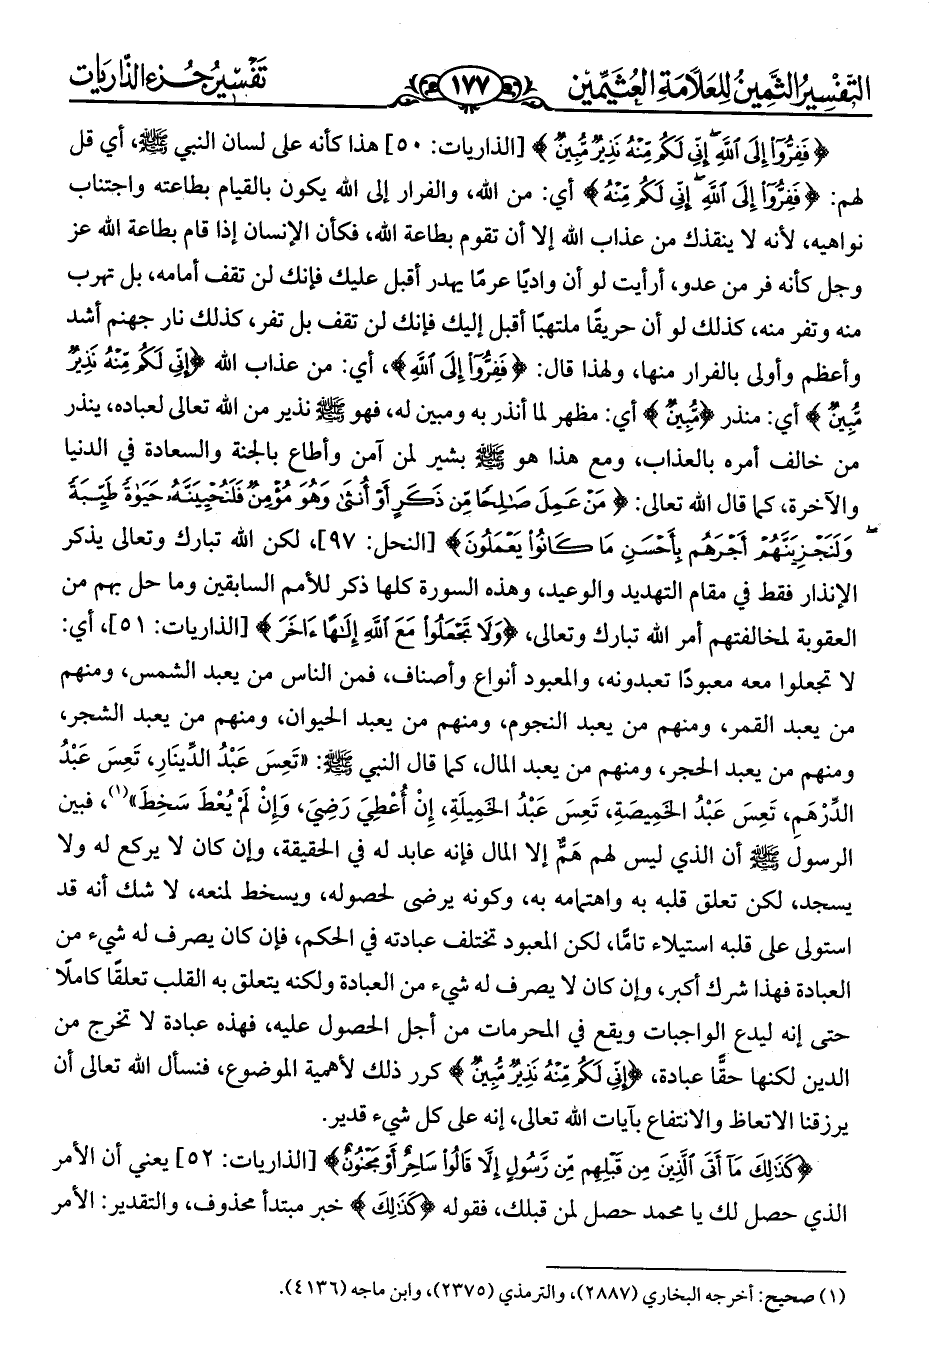 التفسير الثمين للعلامة العثيمين ١٧٧ تفسير جزء الذاريات
﴿فَفِرُّوٓا۟ إِلَى ٱللَّهِ ۖ إِنِّى لَكُم مِّنْهُ نَذِيرٌ مُّبِينٌ﴾ [الذاريات: ٥٠] هذا كأنه على لسان النبي ﷺ، أي قل
لهم: ﴿فَفِرُّوٓا۟ إِلَى ٱللَّهِ ۖ إِنِّى لَكُم مِّنْهُ﴾ أي: من الله، والفرار إلى الله يكون بالقيام بطاعته واجتناب
نواهيه، لأنه لا ينقذك من عذاب الله إلا أن تقوم بطاعة الله، فكأن الإنسان إذا قام بطاعة الله عز
وجل كأنه فر من عدو، أرأيت لو أن واديًا عرمًا يهدر أقبل عليك فإنك لن تقف أمامه، بل تهرب
منه وتفر منه، كذلك لو أن حريقًا ملتهبًا أقبل إليك فإنك لن تقف بل تفر، كذلك نار جهنم أشد
وأعظم وأولى بالفرار منها، ولهذا قال: ﴿فَفِرُّوٓا۟ إِلَى ٱللَّهِ﴾، أي: من عذاب الله ﴿إِنِّى لَكُم مِّنْهُ نَذِيرٌ
مُّبِينٌ﴾ أي: منذر ﴿مُّبِينٌ﴾ أي: مظهر لما أنذر به ومبين له، فهو ﷺ نذير من الله تعالى لعباده، ينذر
من خالف أمره بالعذاب، ومع هذا هو ﷺ بشير لمن آمن وأطاع بالجنة والسعادة في الدنيا
والآخرة، كما قال الله تعالى: ﴿مَنْ عَمِلَ صَـٰلِحًا مِّن ذَكَرٍ أَوْ أُنثَىٰ وَهُوَ مُؤْمِنٌ فَلَنُحْيِيَنَّهُۥ حَيَوٰةً طَيِّبَةً ۖ
وَلَنَجْزِيَنَّهُمْ أَجْرَهُم بِأَحْسَنِ مَا كَانُوا۟ يَعْمَلُونَ﴾ [النحل: ٩٧]، لكن الله تبارك وتعالى يذكر
الإنذار فقط في مقام التهديد والوعيد، وهذه السورة كلها ذكر للأمم السابقين وما حل بهم من
العقوبة لمخالفتهم أمر الله تبارك وتعالى، ﴿وَلَا تَجْعَلُوا۟ مَعَ ٱللَّهِ إِلَـٰهًا ءَاخَرَ﴾ [الذاريات: ٥١]، أي:
لا تجعلوا معه معبودًا تعبدونه، والمعبود أنواع وأصناف، فمن الناس من يعبد الشمس، ومنهم
من يعبد القمر، ومنهم من يعبد النجوم، ومنهم من يعبد الحيوان، ومنهم من يعبد الشجر،
ومنهم من يعبد الحجر، ومنهم من يعبد المال، كما قال النبي ﷺ: «تَعِسَ عَبْدُ الدِّينَارِ، تَعِسَ عَبْدُ
الدِّرْهَمِ، تَعِسَ عَبْدُ الخَمِيصَةِ، تَعِسَ عَبْدُ الخَمِيلَةِ، إِنْ أُعْطِيَ رَضِيَ، وَإِنْ لَمْ يُعْطَ سَخِطَ»(١)، فبين
الرسول ﷺ أن الذي ليس لهم هَمٌّ إلا المال فإنه عابد له في الحقيقة، وإن كان لا يركع له ولا
يسجد، لكن تعلق قلبه به واهتمامه به، وكونه يرضى لحصوله، ويسخط لمنعه، لا شك أنه قد
استولى على قلبه استيلاء تامًّا، لكن المعبود تختلف عبادته في الحكم، فإن كان يصرف له شيء من
العبادة فهذا شرك أكبر، وإن كان لا يصرف له شيء من العبادة ولكنه يتعلق به القلب تعلقًا كاملًا
حتى إنه ليدع الواجبات ويقع في المحرمات من أجل الحصول عليه، فهذه عبادة لا تخرج من
الدين لكنها حقًّا عبادة، ﴿إِنِّى لَكُم مِّنْهُ نَذِيرٌ مُّبِينٌ﴾ كرر ذلك لأهمية الموضوع، فنسأل الله تعالى أن
يرزقنا الاتعاظ والانتفاع بآيات الله تعالى، إنه على كل شيء قدير.
﴿كَذَٰلِكَ مَآ أَتَى ٱلَّذِينَ مِن قَبْلِهِم مِّن رَّسُولٍ إِلَّا قَالُوا۟ سَاحِرٌ أَوْ مَجْنُونٌ﴾ [الذاريات: ٥٢] يعني أن الأمر
الذي حصل لك يا محمد حصل لمن قبلك، فقوله ﴿كَذَٰلِكَ﴾ خبر مبتدأ محذوف، والتقدير: الأمر
(١) صحيح: أخرجه البخاري (٢٨٨٧)، والترمذي (٢٣٧٥)، وابن ماجه (٤١٣٦).